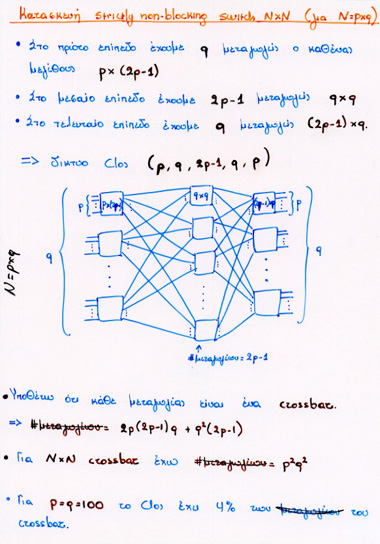 Κατασκευή strictly non-blocking switch N×N (για N=p×q)
• Στο πρώτο επίπεδο έχουμε q μεταγωγείς ο καθένας
μεγέθους p×(2p-1)
• Στο μεσαίο επίπεδο έχουμε 2p-1 μεταγωγείς q×q
• Στο τελευταίο επίπεδο έχουμε q μεταγωγείς (2p-1)×q.
=> δίκτυο Clos (p, q, 2p-1, q, p)
q×q
p
p
q
q
N=p×q
#μεταγωγέων = 2p-1
• Υποθέτω ότι κάθε μεταγωγέας είναι ένα crossbar.
=> #μεταγωγέων = 2p(2p-1)q + q²(2p-1)
• Για N×N crossbar έχω #μεταγωγέων = p²q²
• Για p=q=100 το Clos έχει 4% των μεταγωγέων του
crossbar.